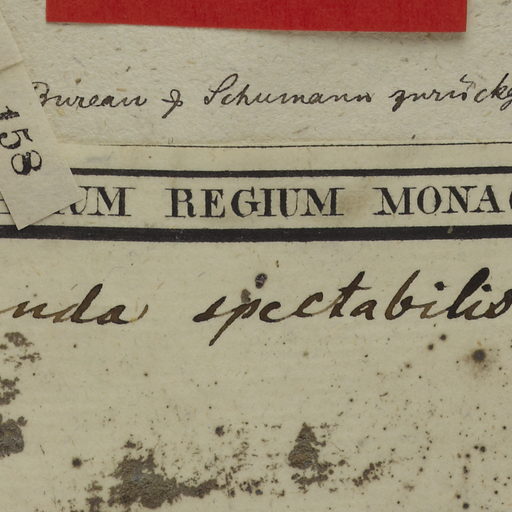 Bureau & Schumann zurückg
158
UM REGIUM MONAC
nda spectabilis